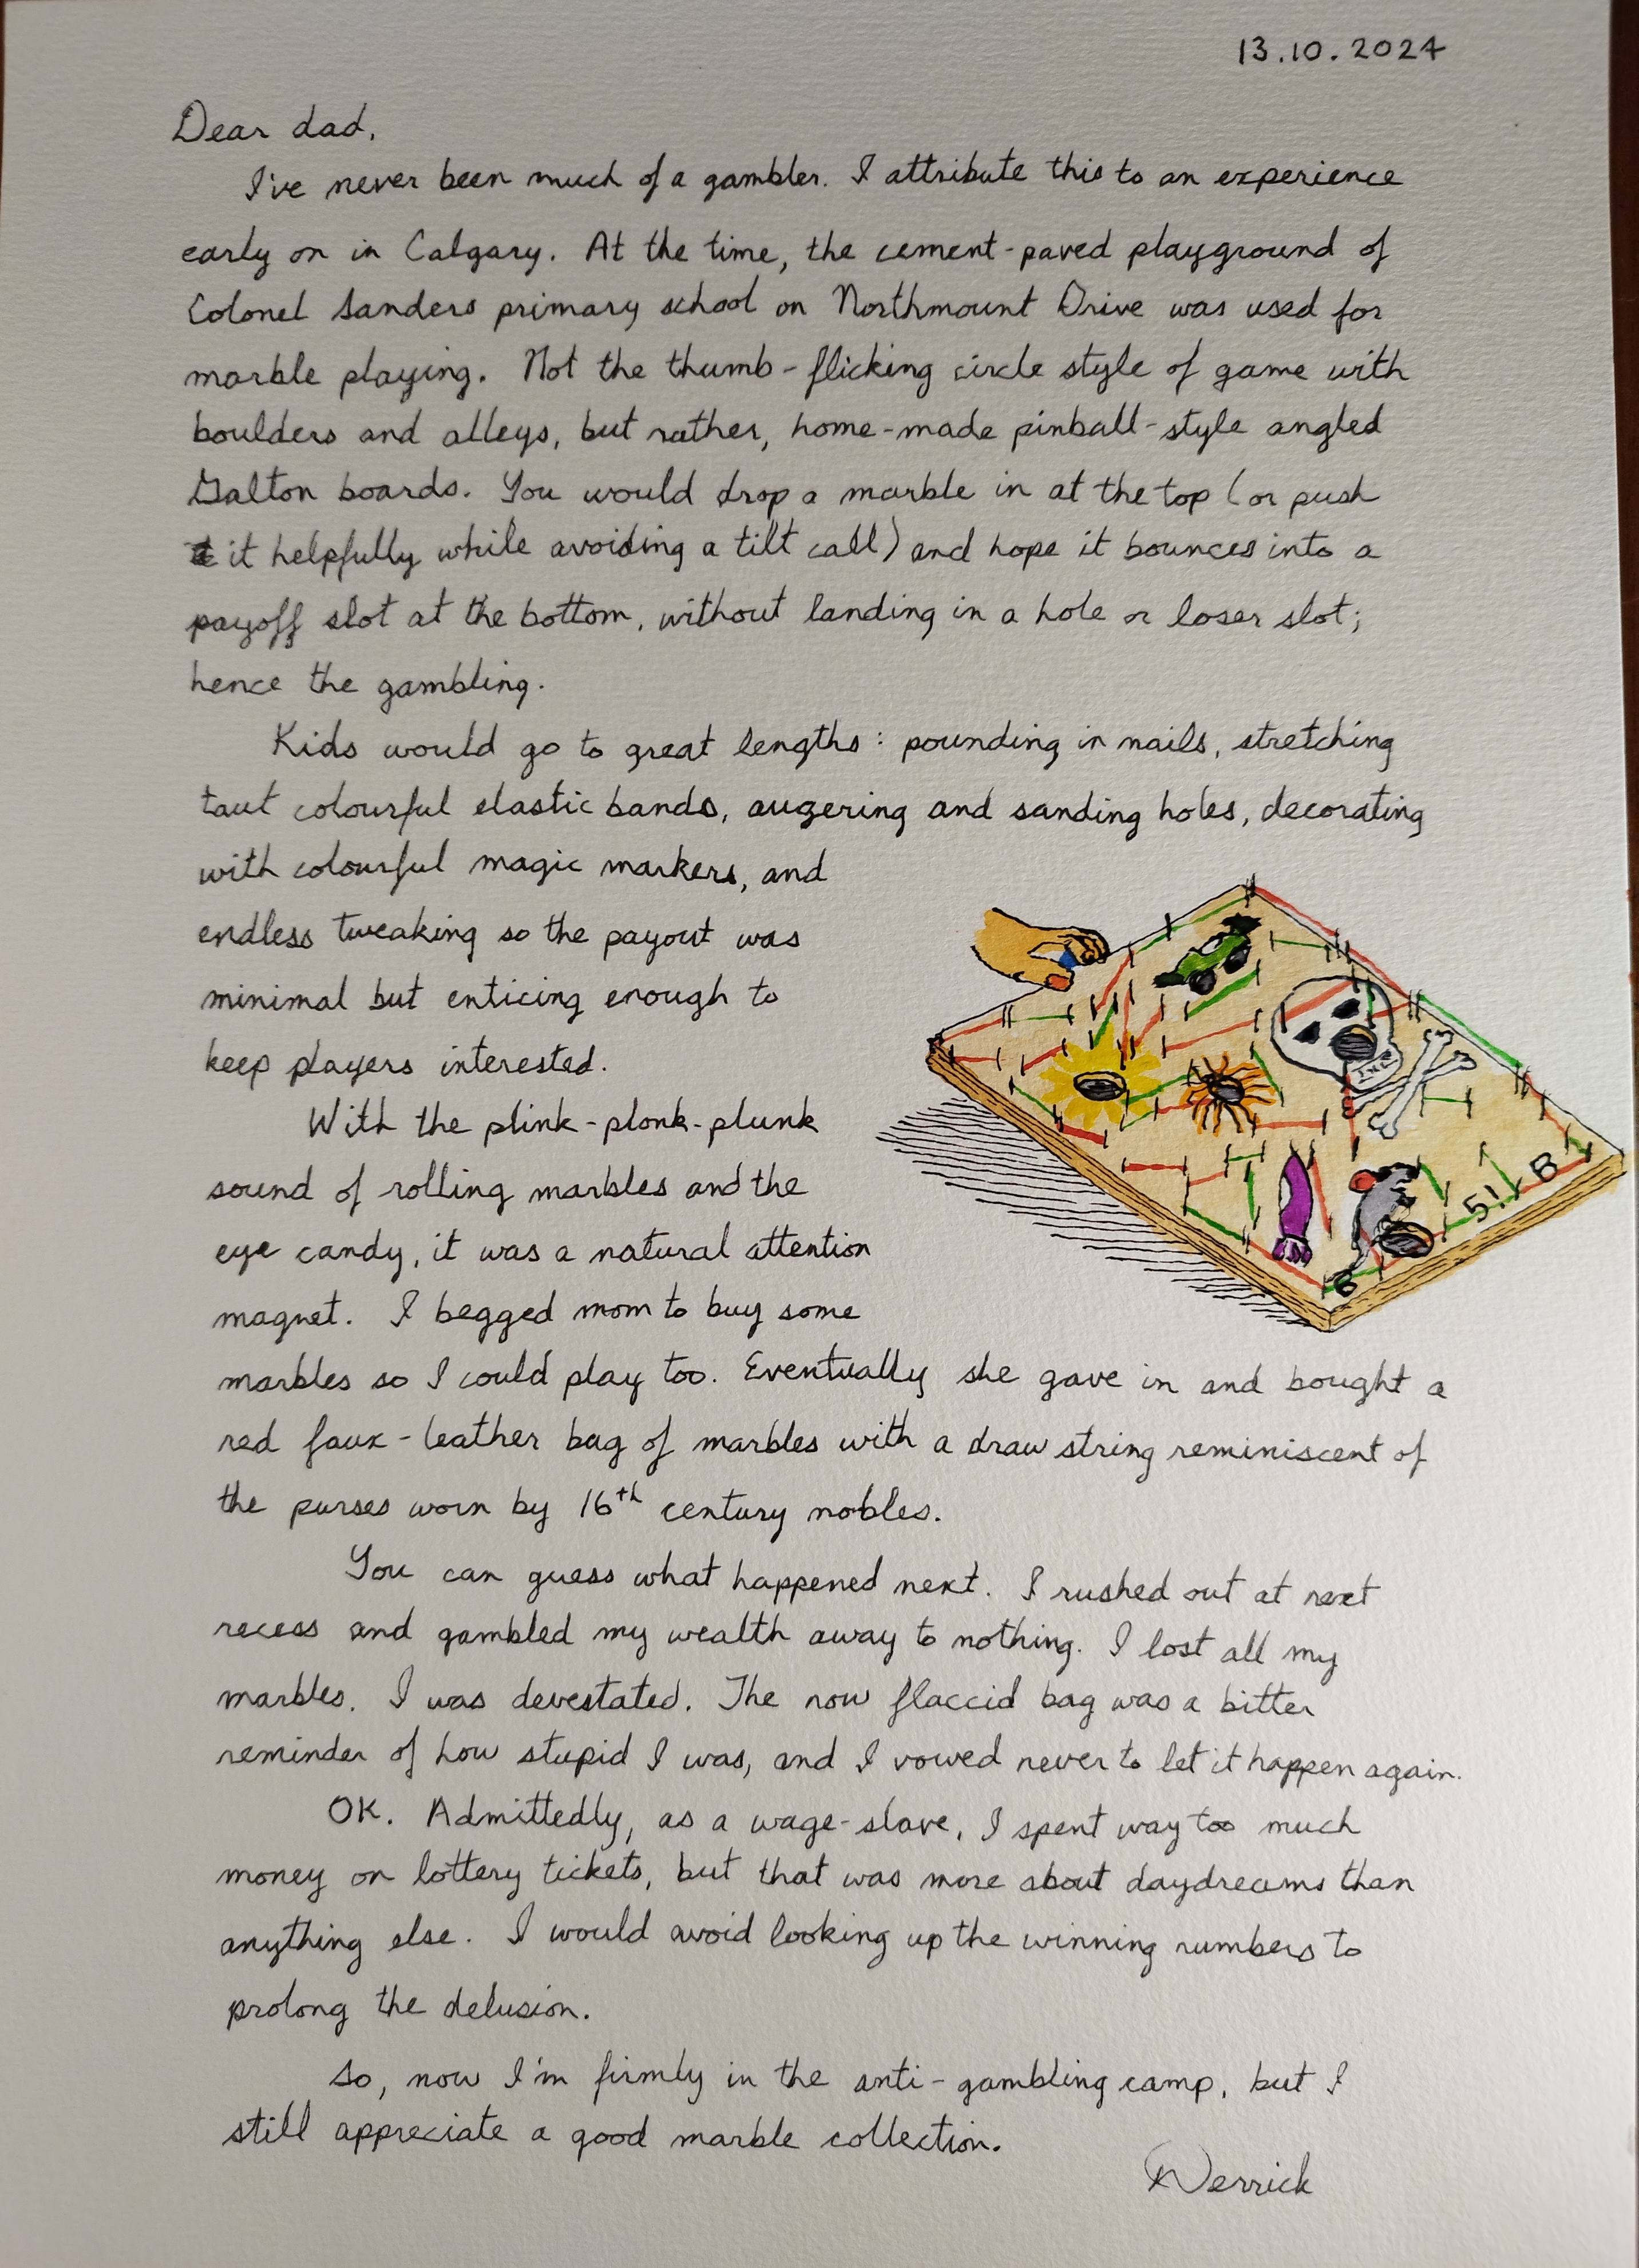 13.10.2024
Dear dad,
I've never been much of a gambler. I attribute this to an experience
early on in Calgary. At the time, the cement-paved playground of
Colonel Sanders primary school on Northmount Drive was used for
marble playing. Not the thumb-flicking circle style of game with
boulders and alleys, but rather, home-made pinball-style angled
Galton boards. You would drop a marble in at the top (or push
it helpfully while avoiding a tilt call) and hope it bounces into a
payoff slot at the bottom, without landing in a hole or loser slot;
hence the gambling.
Kids would go to great lengths: pounding in nails, stretching
taut colourful elastic bands, augering and sanding holes, decorating
with colourful magic markers, and
endless tweaking so the payout was
minimal but enticing enough to
keep players interested.
With the plink-plonk-plunk
sound of rolling marbles and the
eye candy, it was a natural attention
magnet. I begged mom to buy some
marbles so I could play too. Eventually she gave in and bought a
red faux-leather bag of marbles with a draw string reminiscent of
the purses worn by 16th century nobles.
You can guess what happened next. I rushed out at next
recess and gambled my wealth away to nothing. I lost all my
marbles. I was devestated. The now flaccid bag was a bitter
reminder of how stupid I was, and I vowed never to let it happen again.
OK. Admittedly, as a wage-slave, I spent way too much
money on lottery tickets, but that was more about daydreams than
anything else. I would avoid looking up the winning numbers to
prolong the delusion.
So, now I'm firmly in the anti-gambling camp, but I
still appreciate a good marble collection.
Derrick